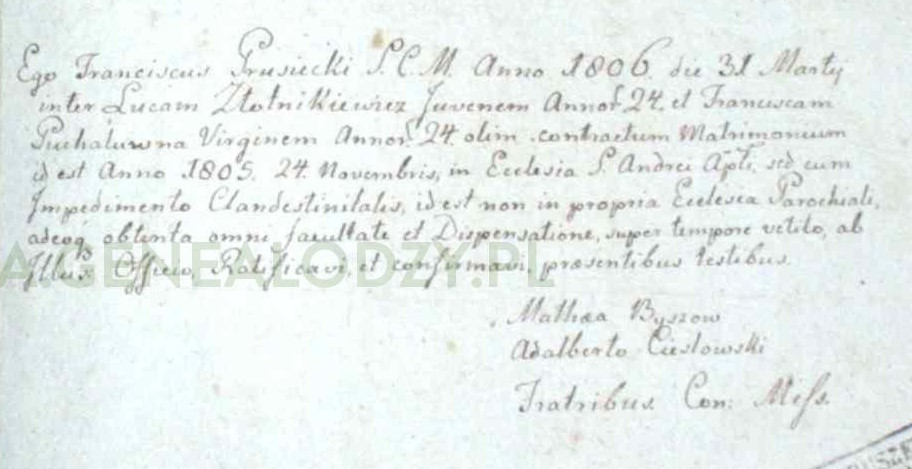 Ego Franciscus Prusiecki S.C.M. Anno 1806. die 31 Martij
inter Lucam Złotnikiewicz Juvenem Annor. 24. et Franciscam
Puchalowna Virginem Annor. 24 olim contractum Matrimonium
id est Anno 1805. 24. Novembris, in Ecclesia S. Andrei Apli, sed cum
Impedimento Clandestinitatis, id est non in propria Ecclesia Parochiali,
adeoq obtenta omni facultate et Dispensatione, super tempore vetito, ab
Officio, Ratificavi, et confirmavi, praesentibus testibus.
AGENEALODZY.PL
Mathaea Byszow
Adalberto Cieslowski
Fratribus Con: Miss.